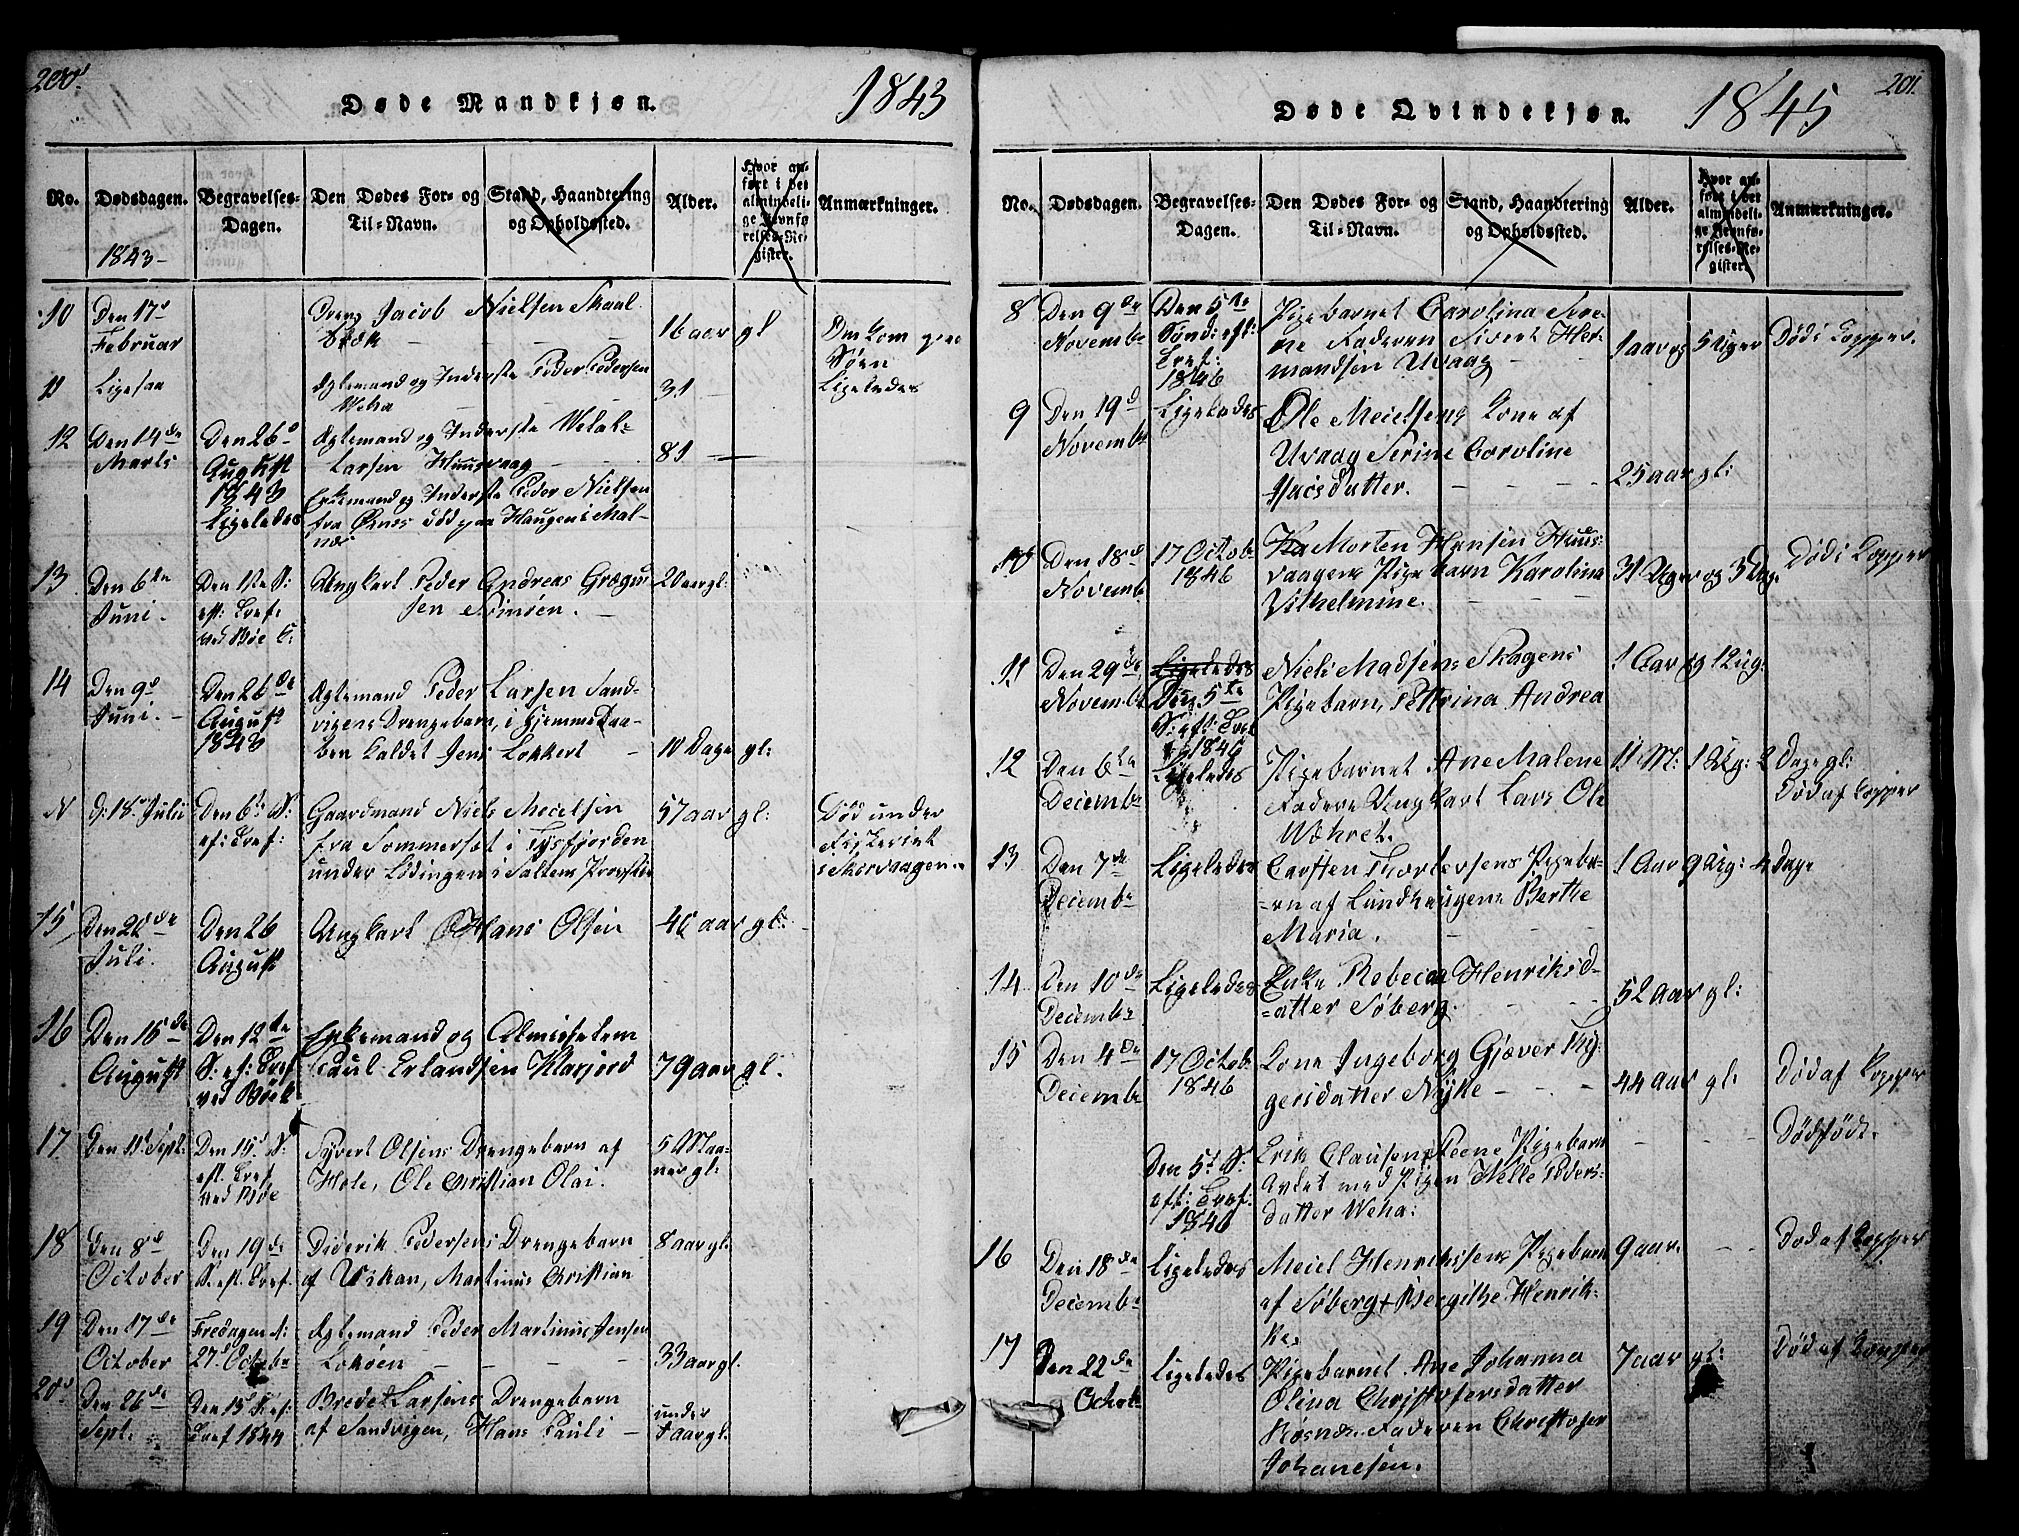 200.
Døde Mandkjøn.
1843
No.
Dødsdagen.
Begravelses-
Dagen.
Den Dødes For- og
Til-Navn.
Stand, Haandtering
og Opholdssted.
Alder.
Hvor an-
ført i det
almindeli-
ge Jevnfø-
relses-Re-
gister.
Anmærkninger.
1843-
10 Den 17d
Februar
Dreng Jacob Nielsen Skaal
16 aar gl
Omkom paa
Søen
11 Ligesaa
Ægtemand og Inderste Peder Pedersen
Weha
31
Ligeledes
12 Den 14de
Marts
Den 26d
August
1843
Ægtemand og Inderste
Larsen Huusvaag
81
Ligeledes
Enkemand og Inderste Peder Nielsen
fra død paa Haugen i Mal-
nes
13 Den 6te
Juni.
Den 1ste S:
eft: Tref:
ved Bøe K:
Ungkarl Peder Andreas Grægus-
sen
20 aar gl:
14 Den 9d
Juni.
Den 26de
August
1843
Ægtemand Peder Larsen Sand-
vigens Drengebarn, i Hjemmedaa-
ben kaldet Jens Lokkert
10 Dage gl:
N d: 18d Juli
Den 6te S:
ef: Tref:
Gaardmand Niels Meielsen
fra Sommerset i Tysfjorden
under Lødingen i Saltens Provstie
57 aar gl:
Død under
Fiskeriet
i Skorvaagen
15 Den
Juli.
Den 26
August
Ungkarl Hans Olsen
aar gl:
16 Den 15de
August
Den 12te
S: ef: Tref
ved Bøe K
Enkemand og Almisselem
Paul Erlandsen Klasjord
79 aar gl.
17 Den 11d Sept:
Den 15d S:
eft. Tref
ved Bøe
Syvert Olsens Drengebarn af
Hole, Ole Christian Olai.
5 Maa-
ner gl:
18 Den 8d
October
Den 19de
S. eft. Tref.
Diderik Pedersens Drengebarn
af Wikan, Martinus Christian
8 aar gl:
19 Den 17de
October
Fredagen d:
27d Octobr
Ægtemand Peder Martinus Jensen
33 aar gl.
20 Den 26de
Sept:
Den 15d S. ef:
Tref 1844
Brede Larsens Drengebarn
af Sandvigen, Hans Pauli
under
1 aar gl:
201.
Døde Qvindekjøn.
1845
No.
Dødsdagen.
Begravelses-
Dagen.
Den Dødes For- og
Til-Navn.
Stand, Haandtering
og Opholdssted.
Alder.
Hvor an-
ført i det
almindeli-
ge Jevnfø-
relses-Re-
gister.
Anmærkninger.
8 Den 9de
Novembr
Den 5te
Sønd: eft:
Tref:
1846
Pigebarnet Carolina Sere-
ne Faderen Sivert Her-
mandsen Uvaag
1 aar og 5 Uger
Død i Kopper.
9 Den 19d
Novembr
Ligeledes
Ole Meielsens Kone af
Uvaag Serine Caroline
datter.
25 aar gl:
10 Den 18de
Novemb.
17 Octobr
1846
Morten Hansen Huus-
vaagens Pigebarn Karolina
Vilhelmine.
31 Uger og 3 Dage
Død i Kopper
11 Den 29de
Novembr
Ligeledes
Den 5te
S: eft: Tref
1846
Niels Madsens Skagens
Pigebarn, Pettrina Andrea
1 Aar og 1 Ug:
12 Den 6te
Decembr
Ligeledes
Pigebarnet Ane Malene
Fadere Ungkarl Lars Ole
11 M: 1 Ug: 2 Dage gl:
Død af Kopper
13 Den 7de
Decembr
Ligeledes
Carsten Pigeba-
=rn af Lundhaugen Berthe
Maria.
1 Aar 9 Ug: 4 Dage
14 Den 10de
Decembr
Ligeledes
Enke Rebecca Henriksd-
=atter Søberg.
52 aar gl:
15 Den 4de
Decembr
17 Octob.
1846
Kone Ingeborg Gjæver Thy-
gersdatter Nykke
44 aar gl:
Død af Kopper
Den 5t S:
eft: Tref:
1846
Erik Clausens Pigebarn
avlet med Pigen Peders-
datter Weha.
Dødfødt.
16 Den 18de
Decembr
Ligeledes
Meiel Henrikssens Pigebarn
af Søberg Henrik-
ke.
9 aar.
Død af Kopper
17 Den 22de
Octobr
Ligeledes
Pigebarnet Ane Johanna
Olina Christofersdatter
Faderen Christofer
Johanesen.
7 aar gl:
Død af Kopper